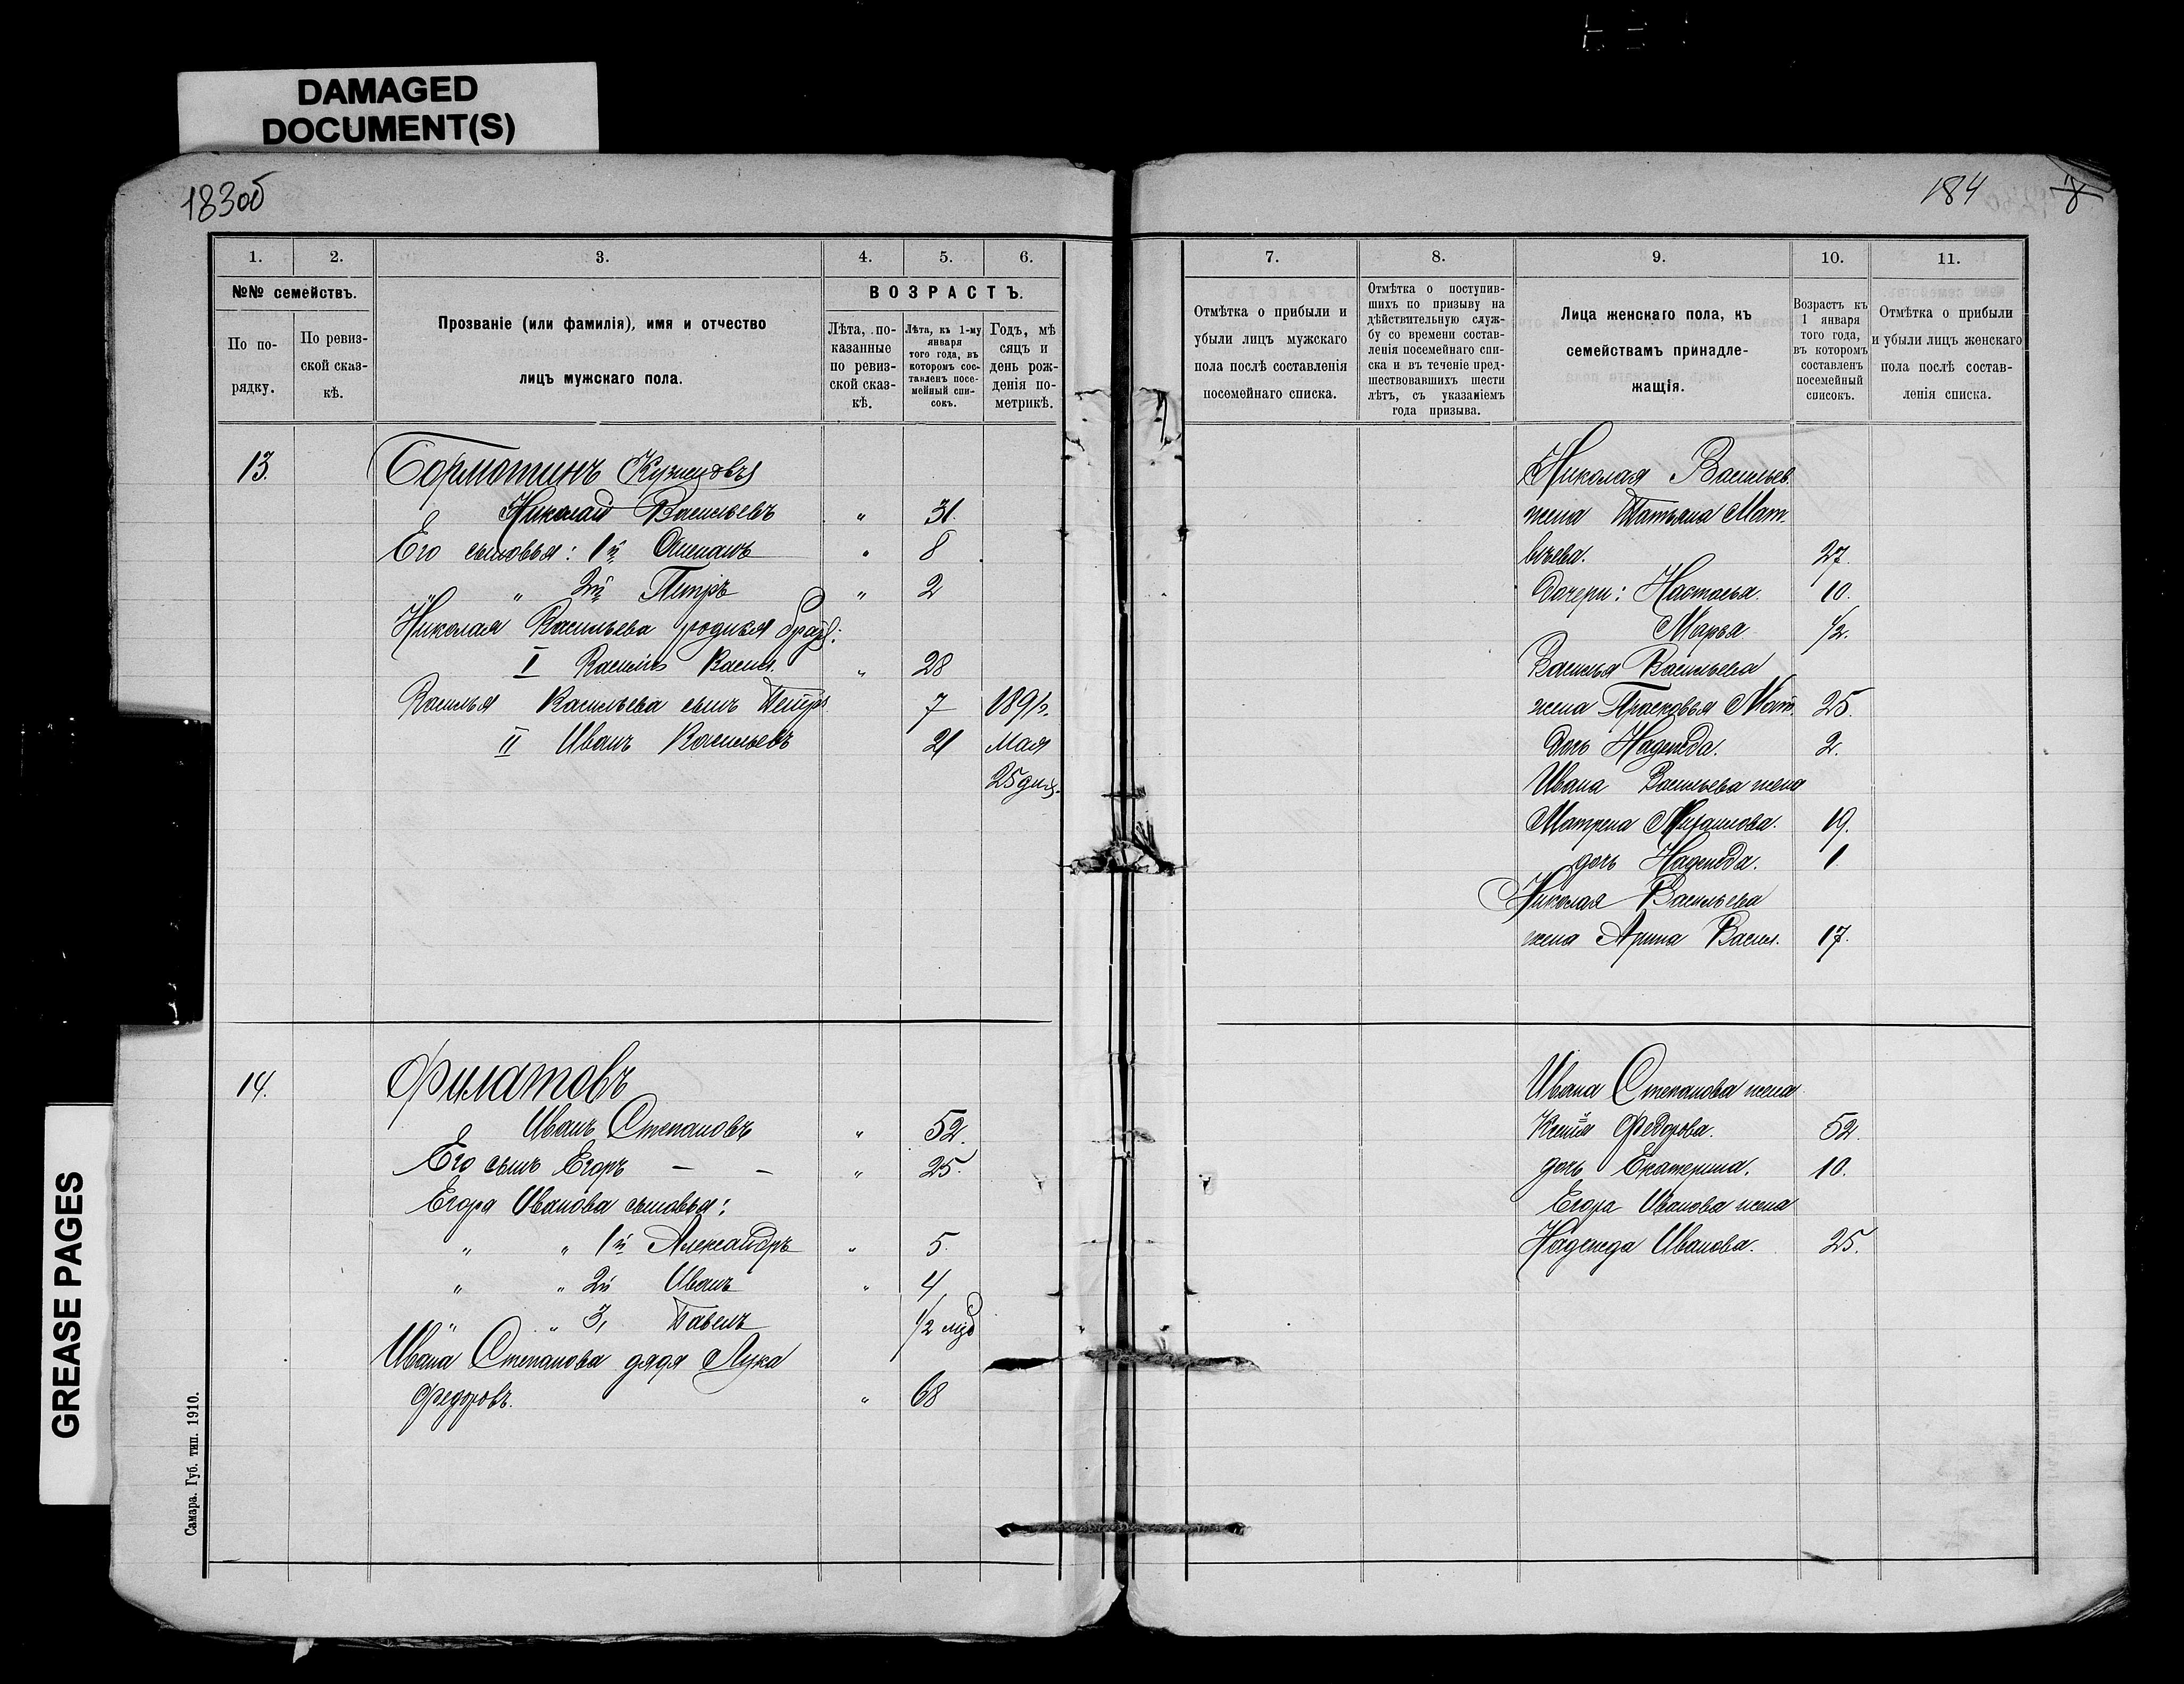 DAMAGED
DOCUMENT(S)
183об
1. 2. 3. 4. 5. 6.
№№ семействъ.
По по-
рядку.
По ревиз-
ской сказ-
кѣ.
Прозваніе (или фамилія), имя и отчество
лицъ мужскаго пола.
ВОЗРАСТЪ.
Лѣта, по-
казанные
по ревиз-
ской сказ-
кѣ.
Лѣта, къ 1-му
января
того года, въ
которомъ сос-
тавленъ посе-
мейный спи-
сокъ.
Годъ, мѣ
сяцъ и
день рож-
денія по-
метрикѣ.
13. Бормотинъ Кузнецовъ
Николай Васильевъ " 31.
Его сыновья: 1й Степанъ " 8
" 2й Петръ " 2
Николая Васильева родныя брат.:
I Василій Васил. " 28
Василья Васильева сынъ Петръ 7 189
II Иванъ Васильевъ 21 Мая
25 дня.
14. Филатовъ
Иванъ Степановъ " 52.
Его сынъ Егоръ – – " 25.
Егора Иванова сыновья:
" " 1й Александръ " 5.
" " 2й Иванъ " 4
" " 3, Павелъ 1/2
Ивана Степанова дядя Лука
Федоровъ. " 68
Самара. Губ. тип. 1910.
GREASE PAGES
184 8
7. 8. 9. 10. 11.
Отмѣтка о прибыли и
убыли лицъ мужскаго
пола послѣ составленія
посемейнаго списка.
Отмѣтка о поступив-
шихъ по призыву на
дѣйствительную служ-
бу со времени состав-
ленія посемейнаго спи-
ска и въ теченіе пред-
шествовавшихъ шести
лѣтъ, съ указаніемъ
года призыва.
Лица женскаго пола, къ
семействамъ принадле-
жащія.
Возрастъ къ
1 января
того года,
въ которомъ
составленъ
посемейный
списокъ.
Отмѣтка о прибыли
и убыли лицъ женскаго
пола послѣ состав-
ленія списка.
Николая Васильев.
жена Татьяна Мат.
вѣева. 27.
Дочери: Настасья. 10.
Марья 1/2.
Василья Васильева
жена Прасковья Мат. 25.
Дочь Надежда. 2.
Ивана Васильева жена
Матрена Михаилова. 19.
дочь Надежда. 1.
Николая Васильева
жена Арина Васил. 17.
Ивана Степанова жена
Ксенія Федорова. 52.
дочь Екатерина. 10.
Егора Иванова жена
Надежда Иванова. 25.